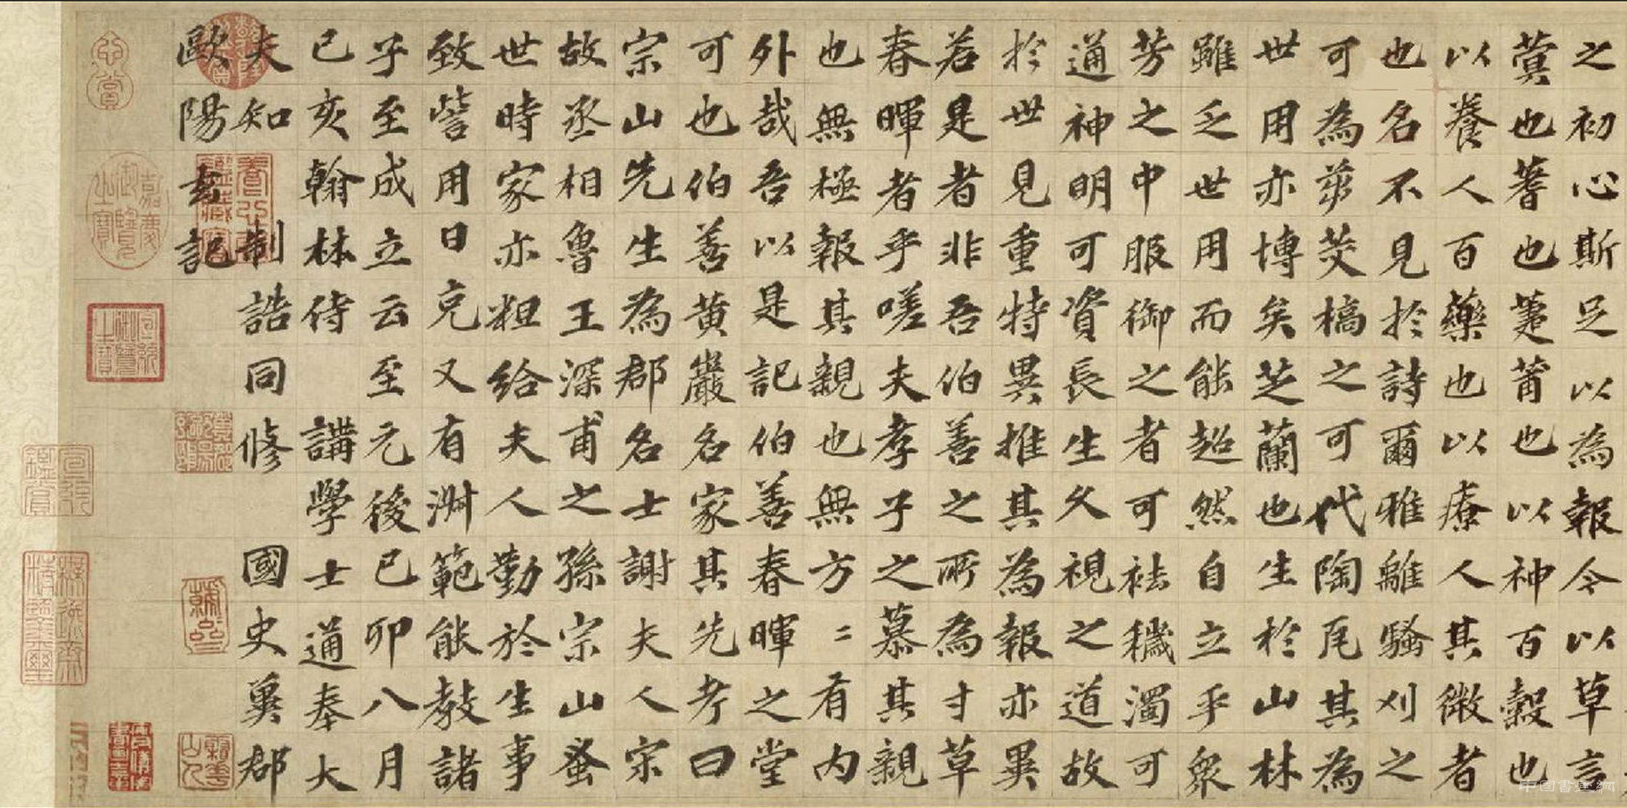 之初心斯足以為報今以草言
蓂也蓍也萐莆也以神百穀也
以養人百藥也以療人其微者
也名不見於詩爾雅離騷刈之
可為茭槁之可代陶瓦其為
世用亦博矣芝蘭也生於山林
雖乏世用而能超然自立乎眾
芳之中服御之者可祛穢濁可
通神明可資長生久視之道故
於世見重特異推其為報亦異
若是者非吾伯善之所為寸草
春暉者乎嗟夫孝子之慕其親
也無極報其親也無方二有內
外哉吾以是記伯善春暉之堂
可也伯善黃巖名家其先考曰
宗山先生為郡名士謝夫人宗
故丞相魯王深甫之孫宗山蚤
世時家亦粗給夫人勤於生事
致訾用日克又有淵範能教諸
子至成立云至元後己卯八月
己亥翰林侍講學士通奉大
夫知制誥同修國史冀郡
歐陽玄記
心賞
嘉慶御覽之寶
宣統御覽之寶